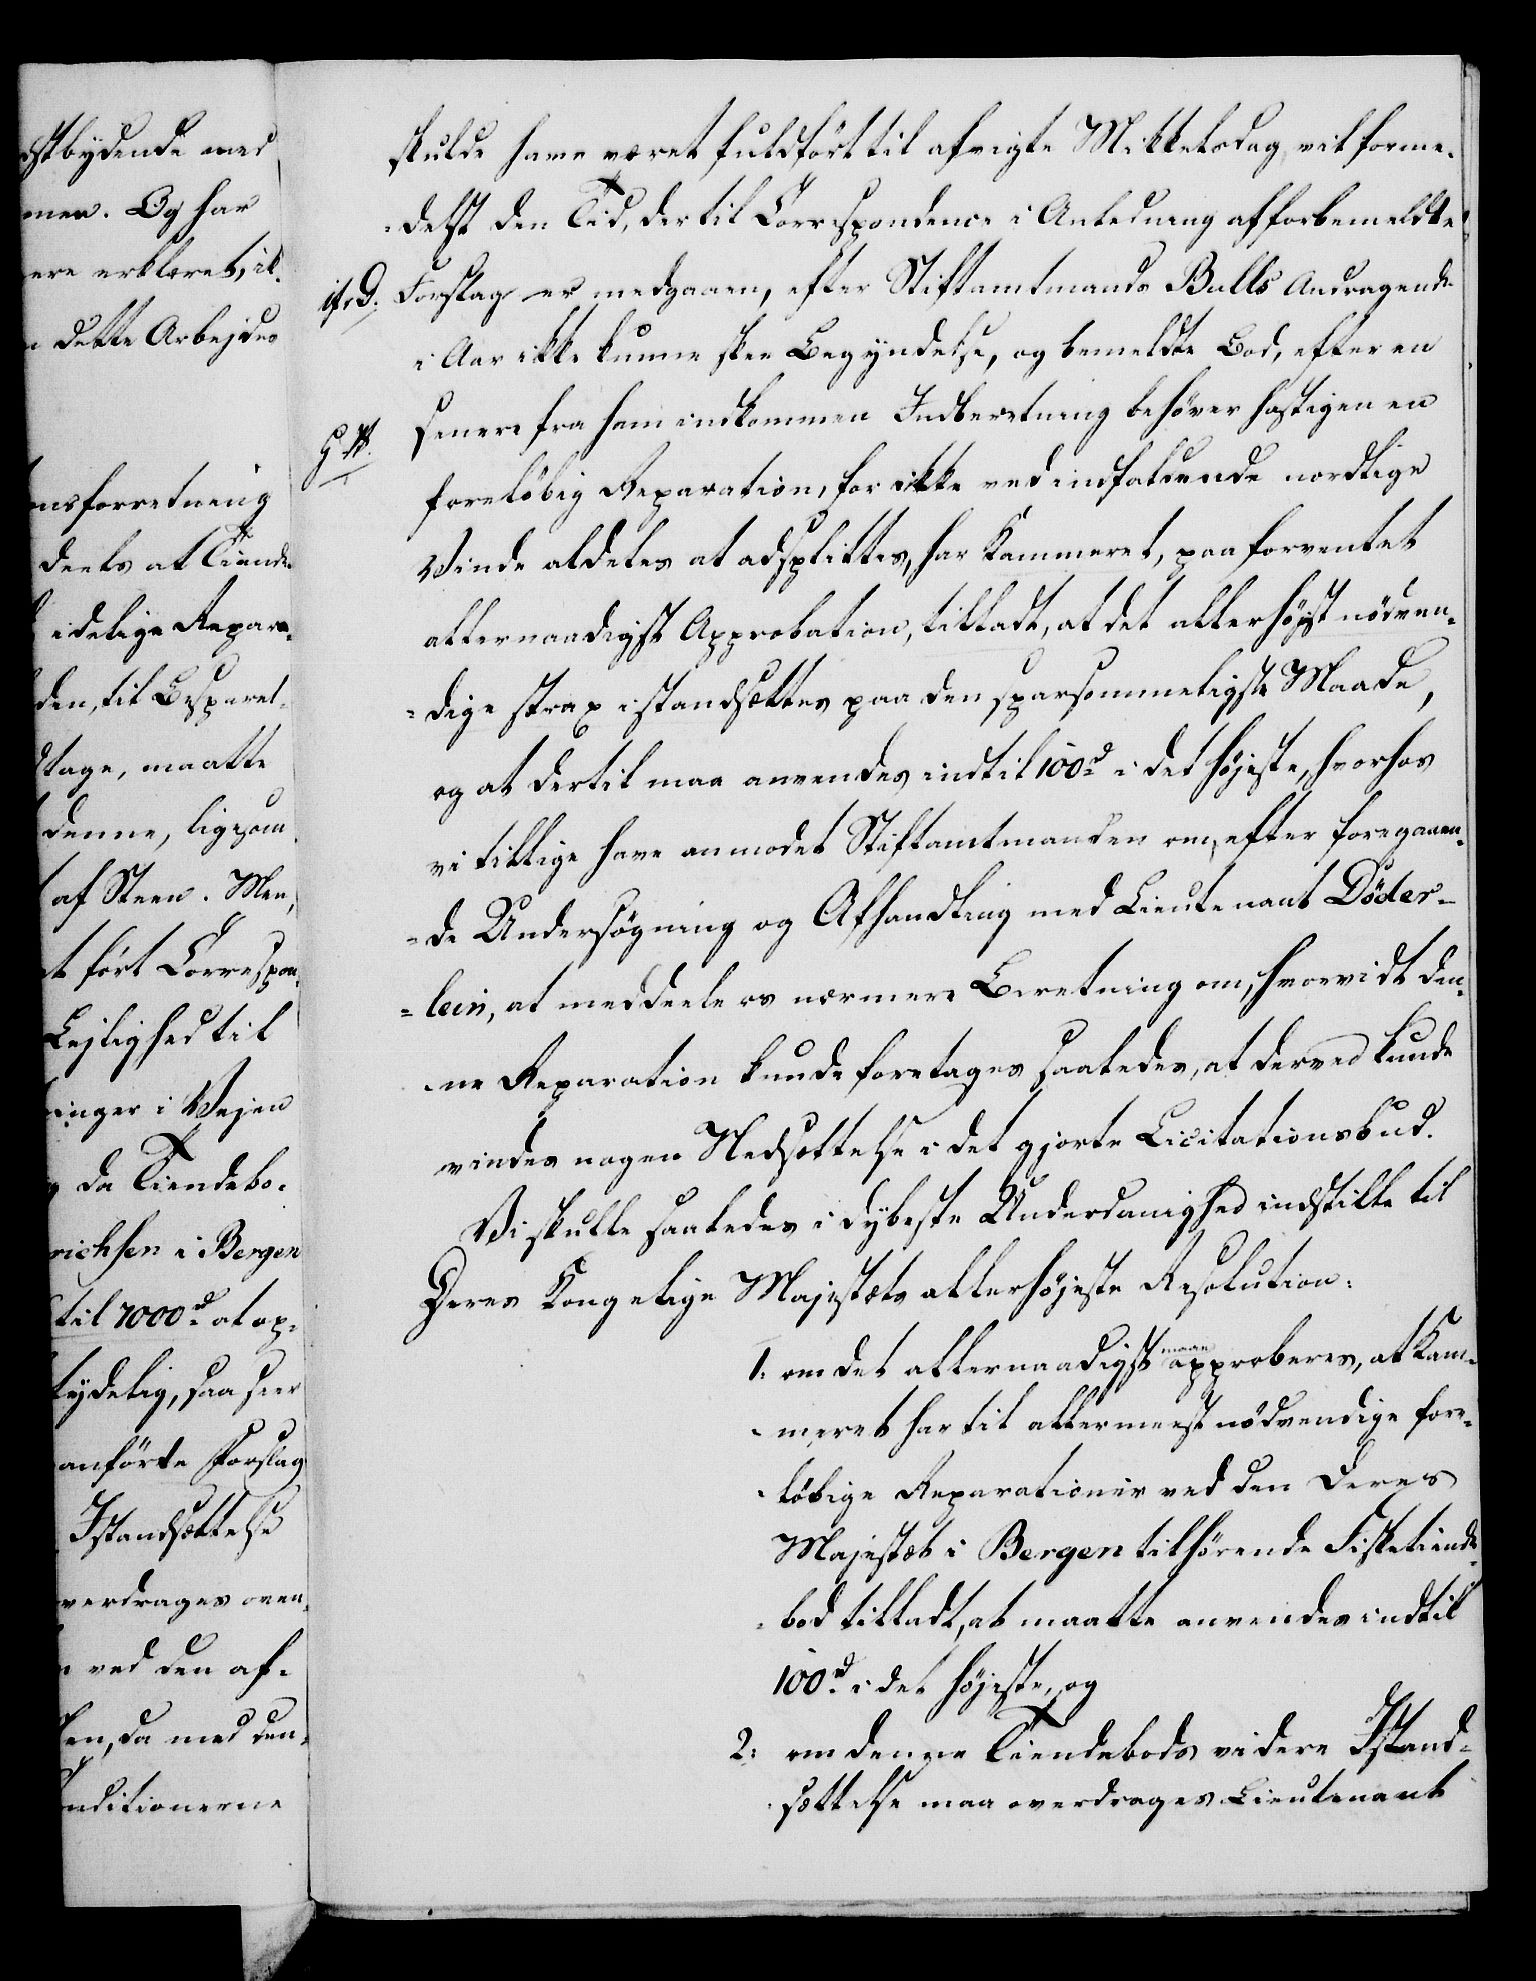 dstbydende med
men. Og har
ere erklæret, il
dette Arbejdes
nsforretning
deels at Tiende
idelige Repara-
den, til Besparel-
tage, maatte
denne, ligesom
af Steen. Men,
t ført Correspon-
Lejlighed til
inger i Vejen
da Tiendebo-
richsen i Bergen
til 7000 rd at op-
tydelig, saa seer
anførte Forslag
Istandsættelse
verdrages oven-
ved den af-
en, da med den-
nditionerne
skulde have været fuldført til afvigte Mikkelsdag, vil forme-
-delst den Tid, der til Correspondence i Anledning af forbemeldte
Forslag er medgaaen, efter Stiftamtmands Bulls Andragende
i Aar ikke kunne skee Begyndelse, og bemeldte Bod, efter en
senere fra ham indkommen Indberetning behøver hastigen en
foreløbig Reparation, for ikke ved indfaldende nordlige
Vinde aldeles at adsplittes, har Kammeret, paa forventet
allernaadigst Approbation, tilladt, at det allerhøist nødven-
-dige strax istandsættes paa den sparsommeligste Maade,
og at dertil maa anvendes indtil 100 rd i det højeste, hvorhos
vi tillige have anmodet Stiftamtmanden om, efter foregaaen-
-de Undersøgning og Afhandling med Lieutenant Döder-
=lein, at meddeele os nærmere Beretning om, hvorvidt den-
-ne Reparation kunde foretages saaledes, at derved kunde
vindes nogen Nedsættelse i det gjorte Licitationsbud.
Vi skulle saaledes i dybeste Underdanighed indstille til
Deres Kongelige Majestæts allerhøjeste Resolution:
1: om det allernaadigst maae approberes, at Kam-
-meret har til allermeest nødvendige fore-
-løbige Reparationer ved den Deres
Majestæt i Bergen tilhørende Fisketiende-
-bod tilladt, at maatte anvendes indtil
100 rd i det højeste, og
2: om denne Tiendebods videre Istand-
-sættelse maa overdrages Lieutenant